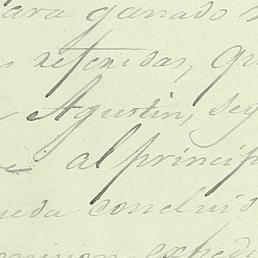 para ganado
refenidas, qu
Agustin, seg
al princip
ueda concluid
expedi